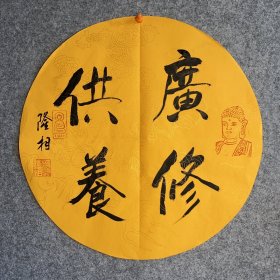 廣修
供養
隆相